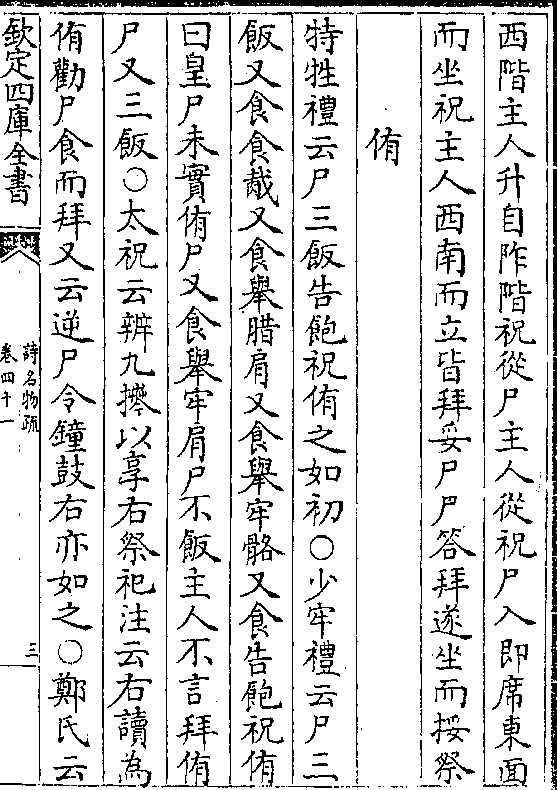 西階主人升自阼階祝從尸主人從祝尸入即席東面
而坐祝主人西南而立皆拜妥尸尸答拜遂坐而挼祭
侑
特牲禮云尸三飯告飽祝侑之如初○少牢禮云尸三
飯又食食胾又食舉腊肩又食舉牢骼又食告飽祝侑
曰皇尸未實侑尸又食舉牢肩尸不飯主人不言拜侑
尸又三飯○太祝云辨九㩓以享右祭祀注云右讀為
侑勸尸食而拜又云逆尸令鐘鼓右亦如之○鄭氏云
欽定四庫全書
詩名物疏
卷四十一
三